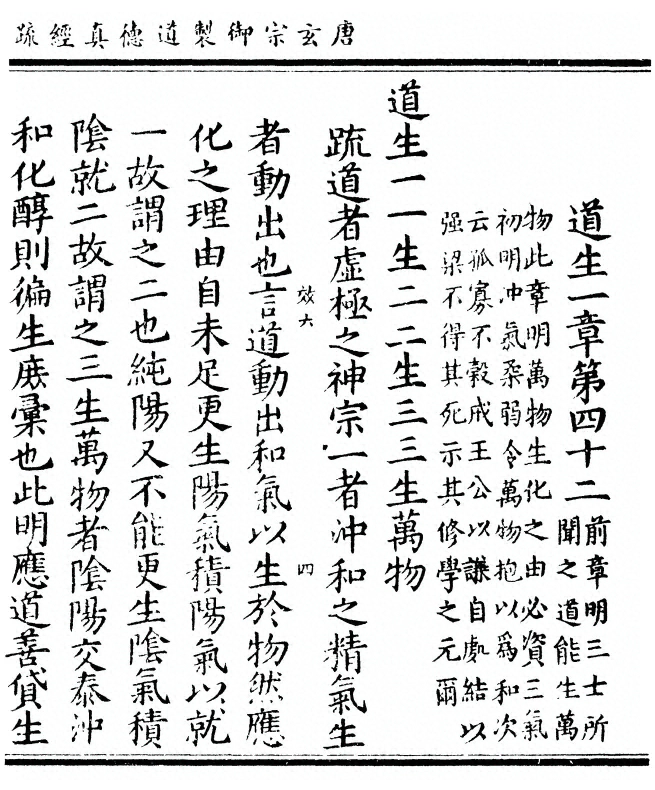 唐玄宗御製道德真經疏
道生一章第四十二前章明三士所
聞之道能生萬
物此章明萬物生化之由必資三氣
初明沖氣柔弱令萬物抱以爲和次
云孤寡不穀戒王公以謙自處結以
强梁不得其死示其修學之元爾
道生一一生二二生三三生萬物
疏道者虛極之神宗一者沖和之精氣生
效六 四
者動出也言道動出和氣以生於物然應
化之理由自未足更生陽氣積陽氣以就
一故謂之二也純陽又不能更生陰氣積
陰就二故謂之三生萬物者陰陽交泰沖
和化醇則徧生庶彙也此明應道善貸生